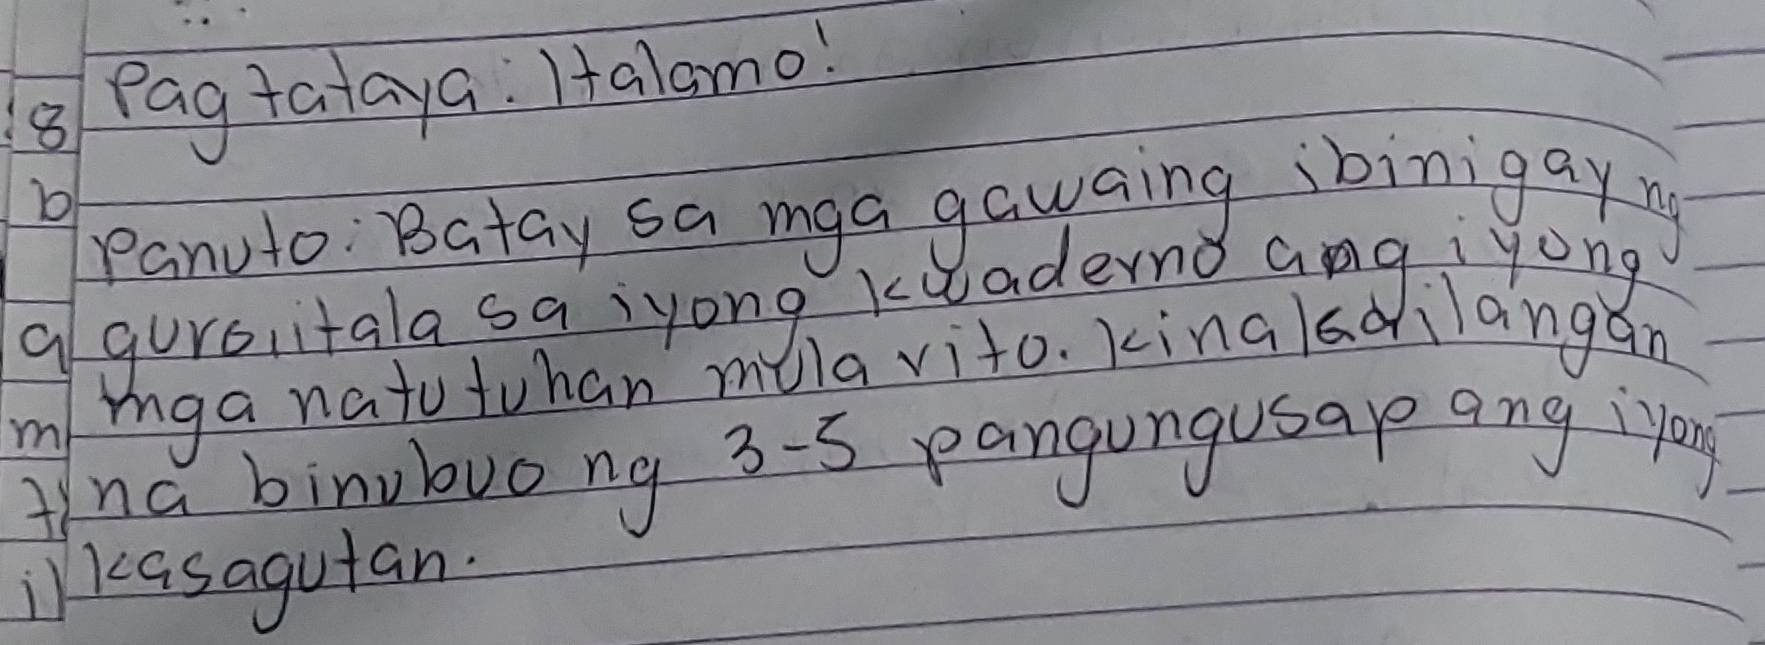 Pagtataya: Italamo!
8
b
Panuto: Batay sa mga gawaing ibinigay ng
a guro, itala sa iyong kwaderno ang iyong
m mga natutuhan mula rito. kinaladilangan
na binubuo ng 3-5 pangungusap ang iyong
i kasagutan.